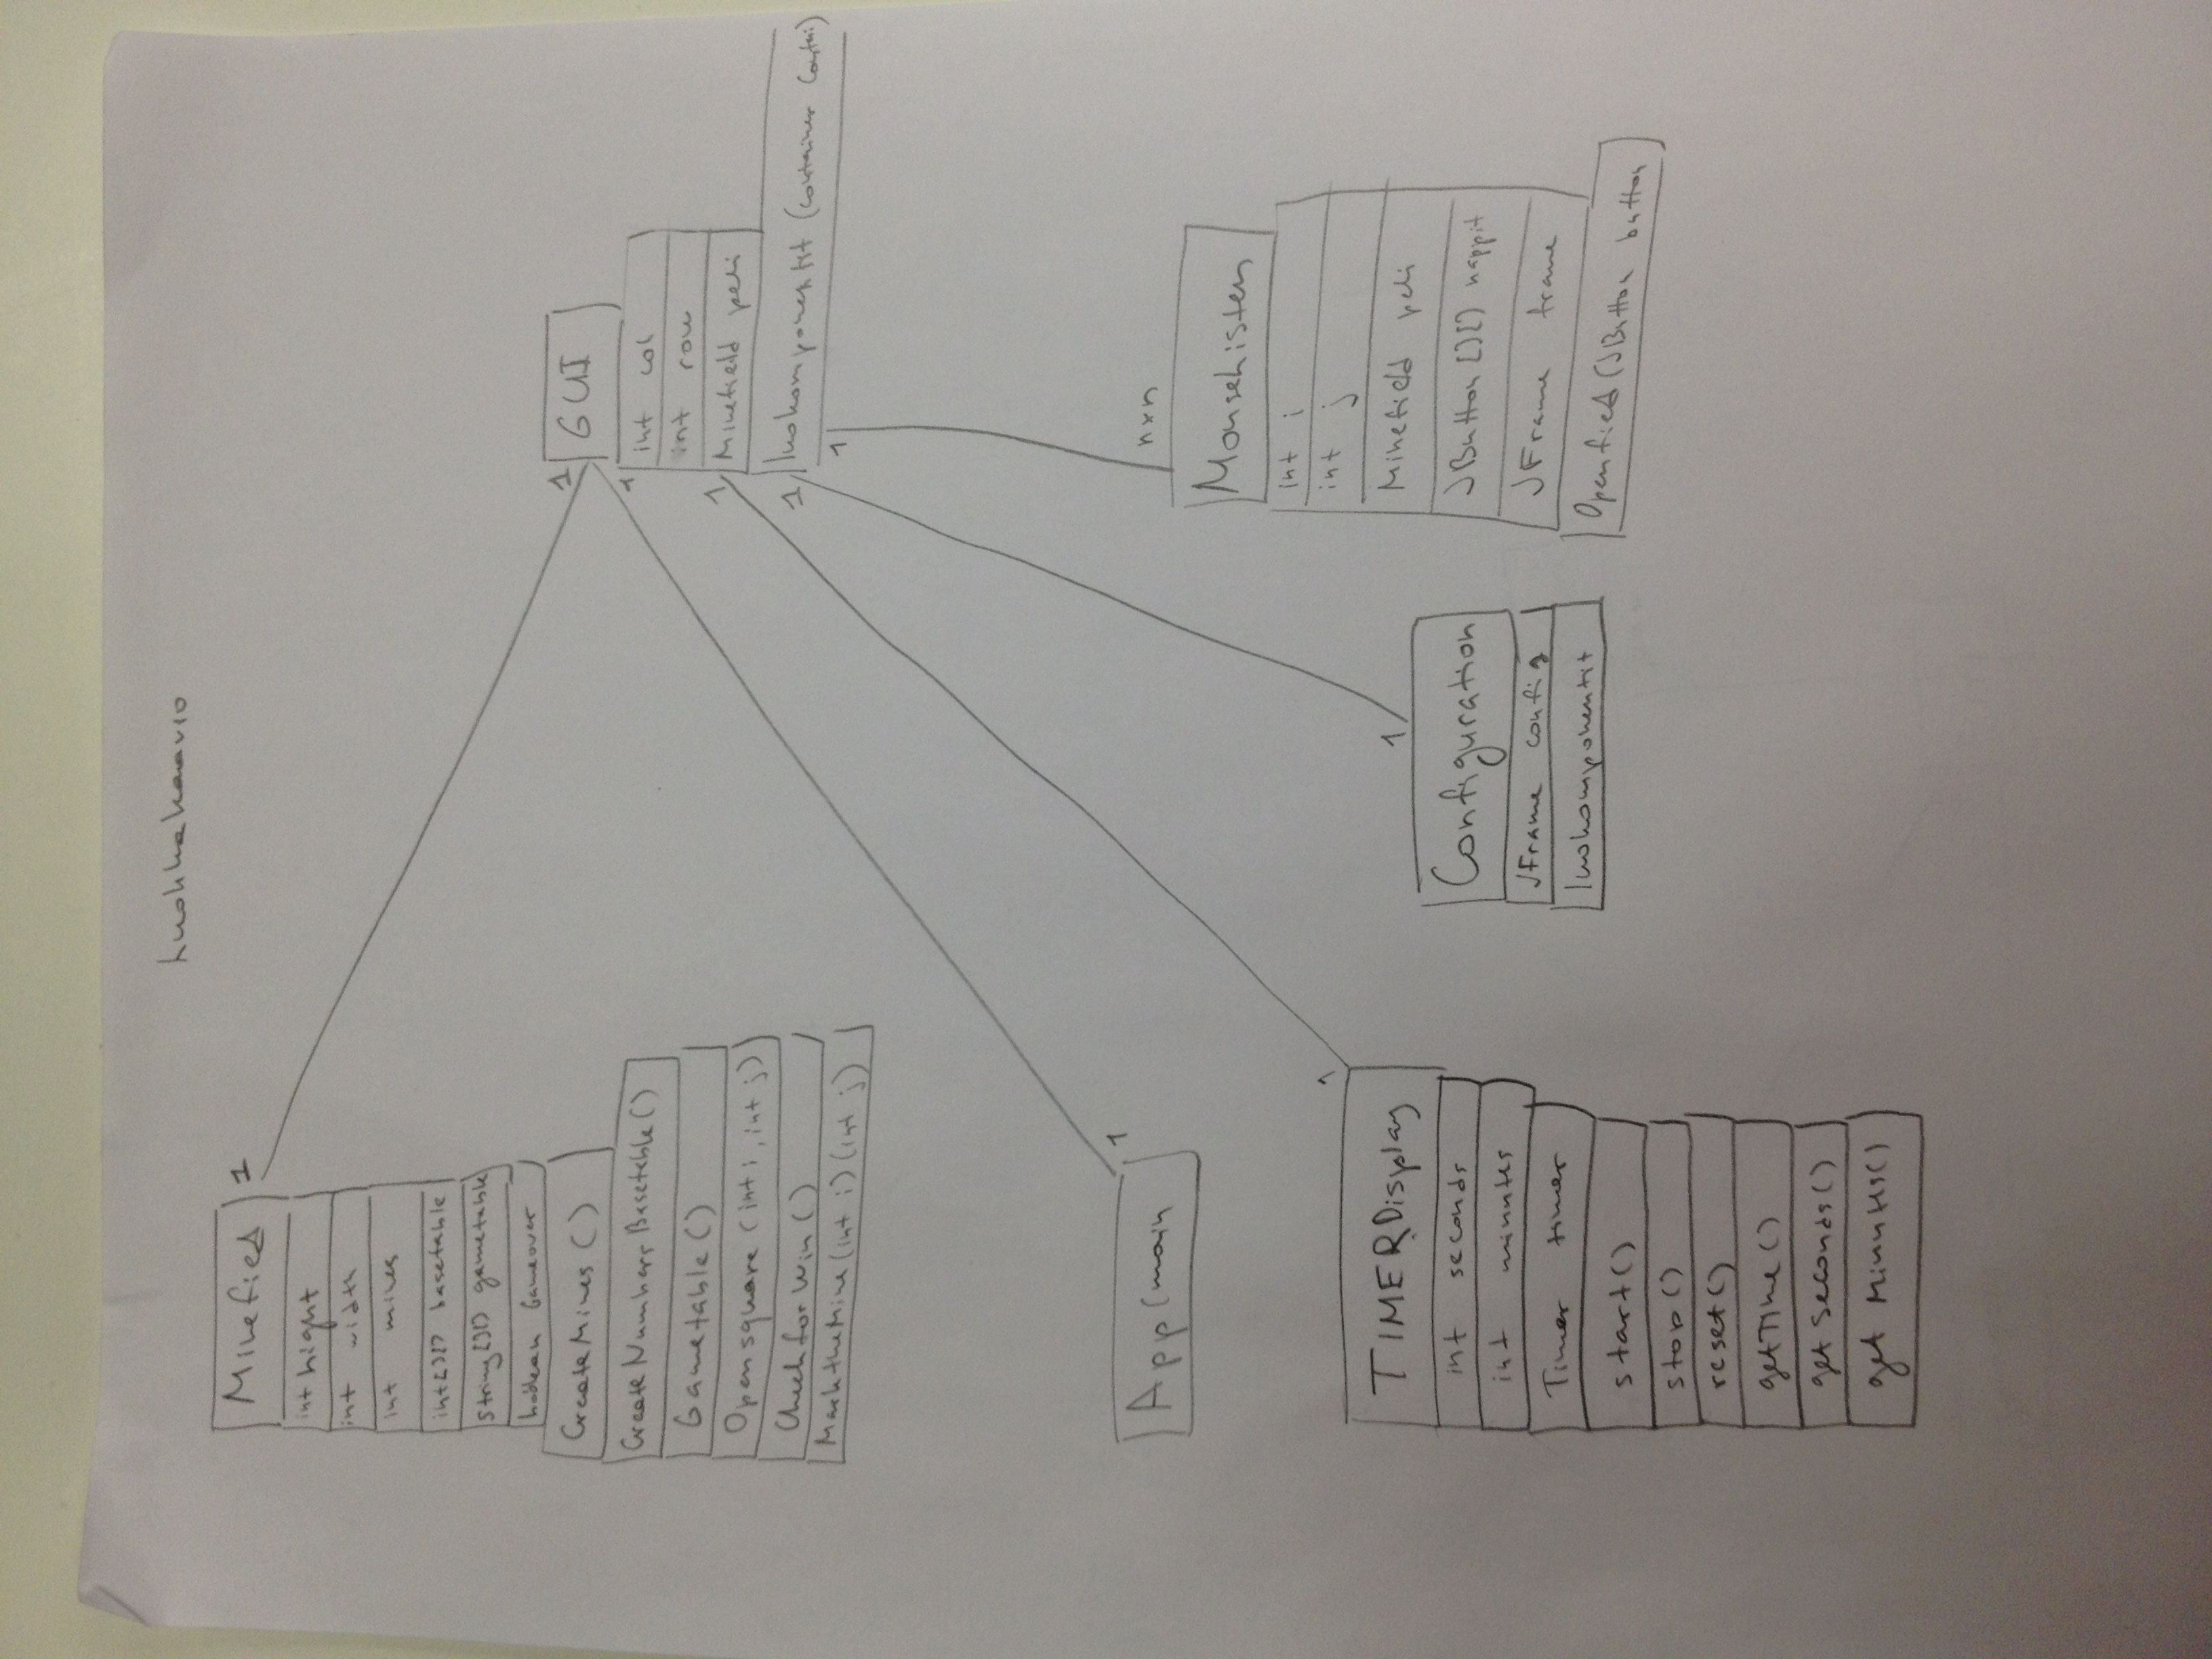 Luokkakaavio
Minefied 1
int hight
int width
int mines
int[][] basetable
String[][] gametable
boolean Gameover
CreateMines ()
Create Numbers Basetable ()
Gametable ()
Opensquare (int i, int j)
Check for Win ()
MarktheMine (int i) (int j)
1 GUI
1 int col
int row
1 Minefield peli
1 luokomponentit (container Contai)
1
1
App (main
nxn
MouseListen
int i
int j
Minefield peli
JButton [][] nappit
JFrame frame
Openfied (JButton button
1
TIMERDisplay
int seconds
int minutes
Timer timer
start()
stop()
reset()
getTime ()
get Seconds()
get Minutes()
1
Configuration
JFrame config
luokomponentit